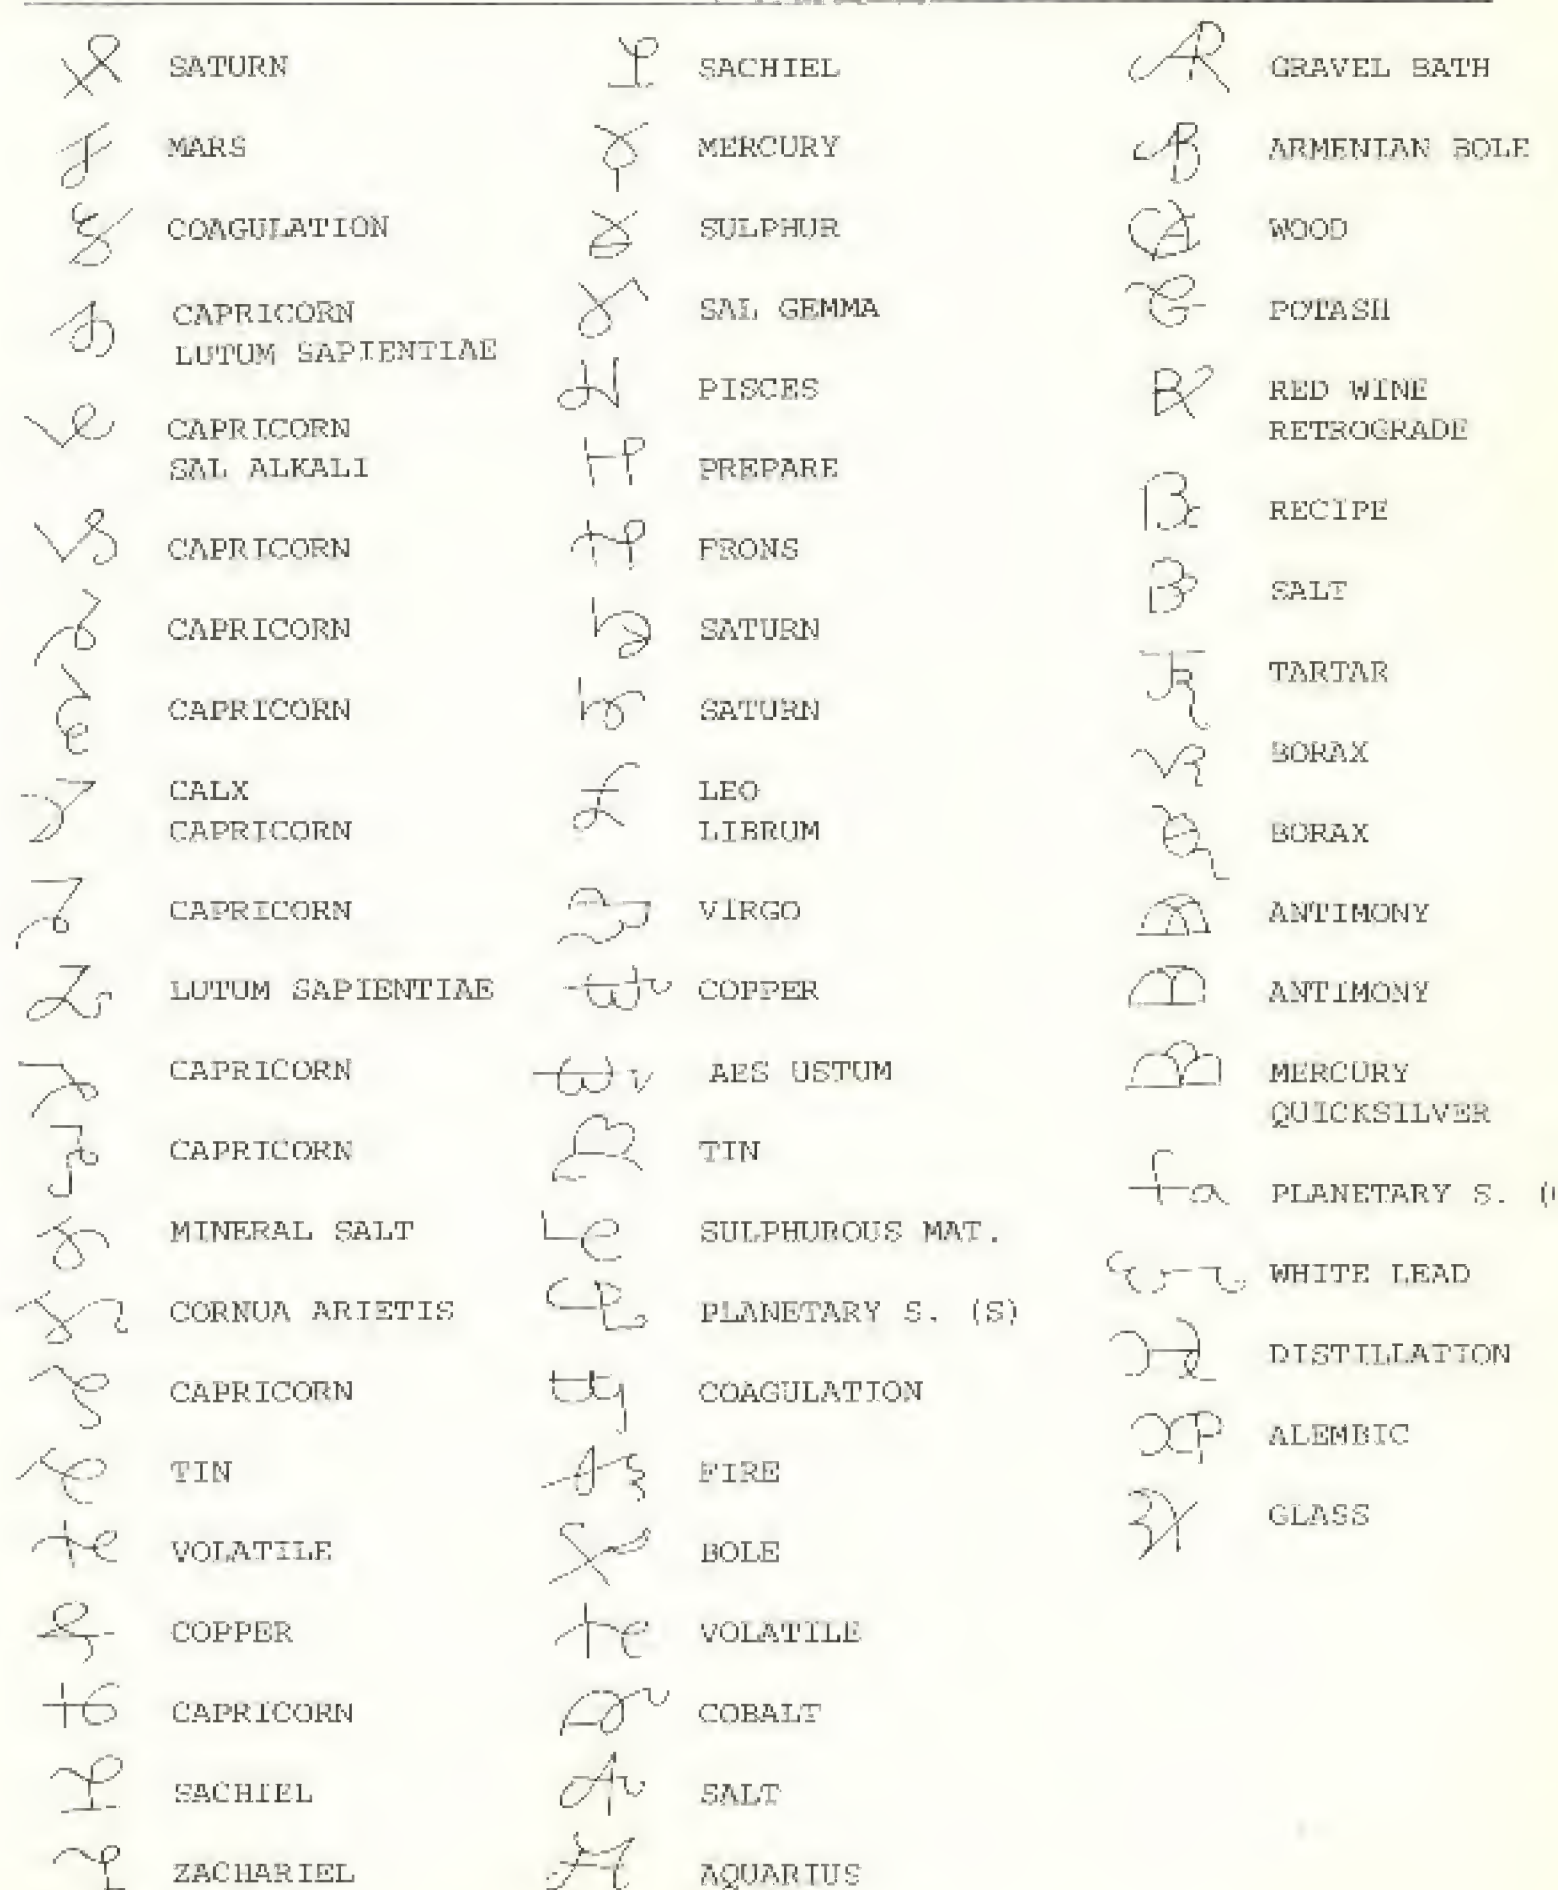 SATURN
MARS
COAGULATION
CAPRICORN
LUTUM SAPIENTIAE
CAPRICORN
SAL ALKALI
CAPRICORN
CAPRICORN
CAPRICORN
CALX
CAPRICORN
CAPRICORN
LUTUM SAPIENTIAE
CAPRICORN
CAPRICORN
MINERAL SALT
CORNUA ARIETIS
CAPRICORN
TIN
VOLATILE
COPPER
CAPRICORN
SACHIEL
ZACHARIEL
SACHIEL
MERCURY
SULPHUR
SAL GEMMA
PISCES
PREPARE
FRONS
SATURN
SATURN
LEO
LIBRUM
VIRGO
COPPER
AES USTUM
TIN
SULPHUROUS MAT.
PLANETARY S. (S)
COAGULATION
FIRE
BOLE
VOLATILE
COBALT
SALT
AQUARIUS
GRAVEL BATH
ARMENIAN BOLE
WOOD
POTASH
RED WINE
RETROGRADE
RECIPE
SALT
TARTAR
BORAX
BORAX
ANTIMONY
ANTIMONY
MERCURY
QUICKSILVER
PLANETARY S. (
WHITE LEAD
DISTILLATION
ALEMBIC
GLASS